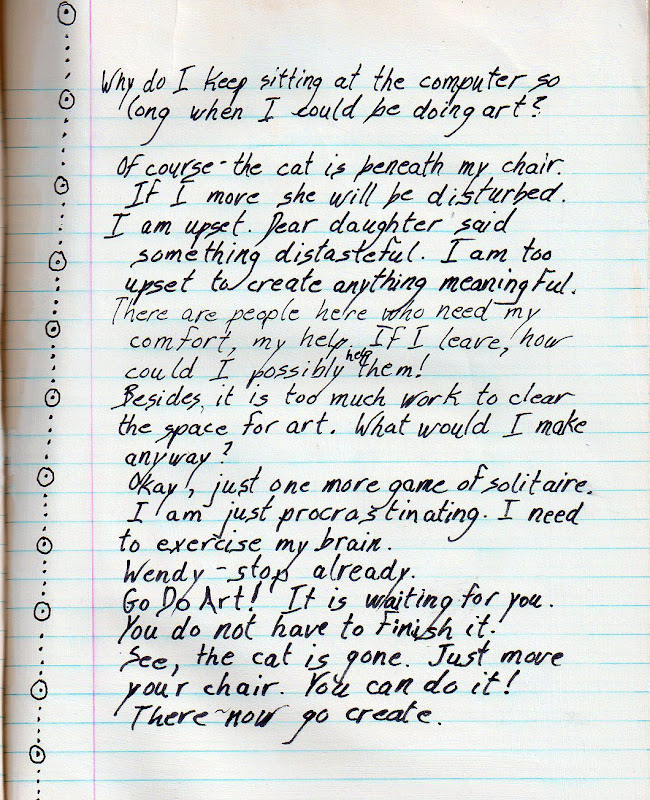 Why do I keep sitting at the computer so
long when I could be doing art?
Of course - the cat is beneath my chair.
If I move she will be disturbed.
I am upset. Dear daughter said
something distasteful. I am too
upset to create anything meaningful.
There are people here who need my
comfort, my help. If I leave, how
could I possibly help them!
Besides, it is too much work to clear
the space for art. What would I make
anyway?
Okay, just one more game of solitaire.
I am just procrastinating. I need
to exercise my brain.
Wendy - stop already.
Go Do Art! It is waiting for you.
You do not have to finish it.
See, the cat is gone. Just move
your chair. You can do it!
There ~ now go create.